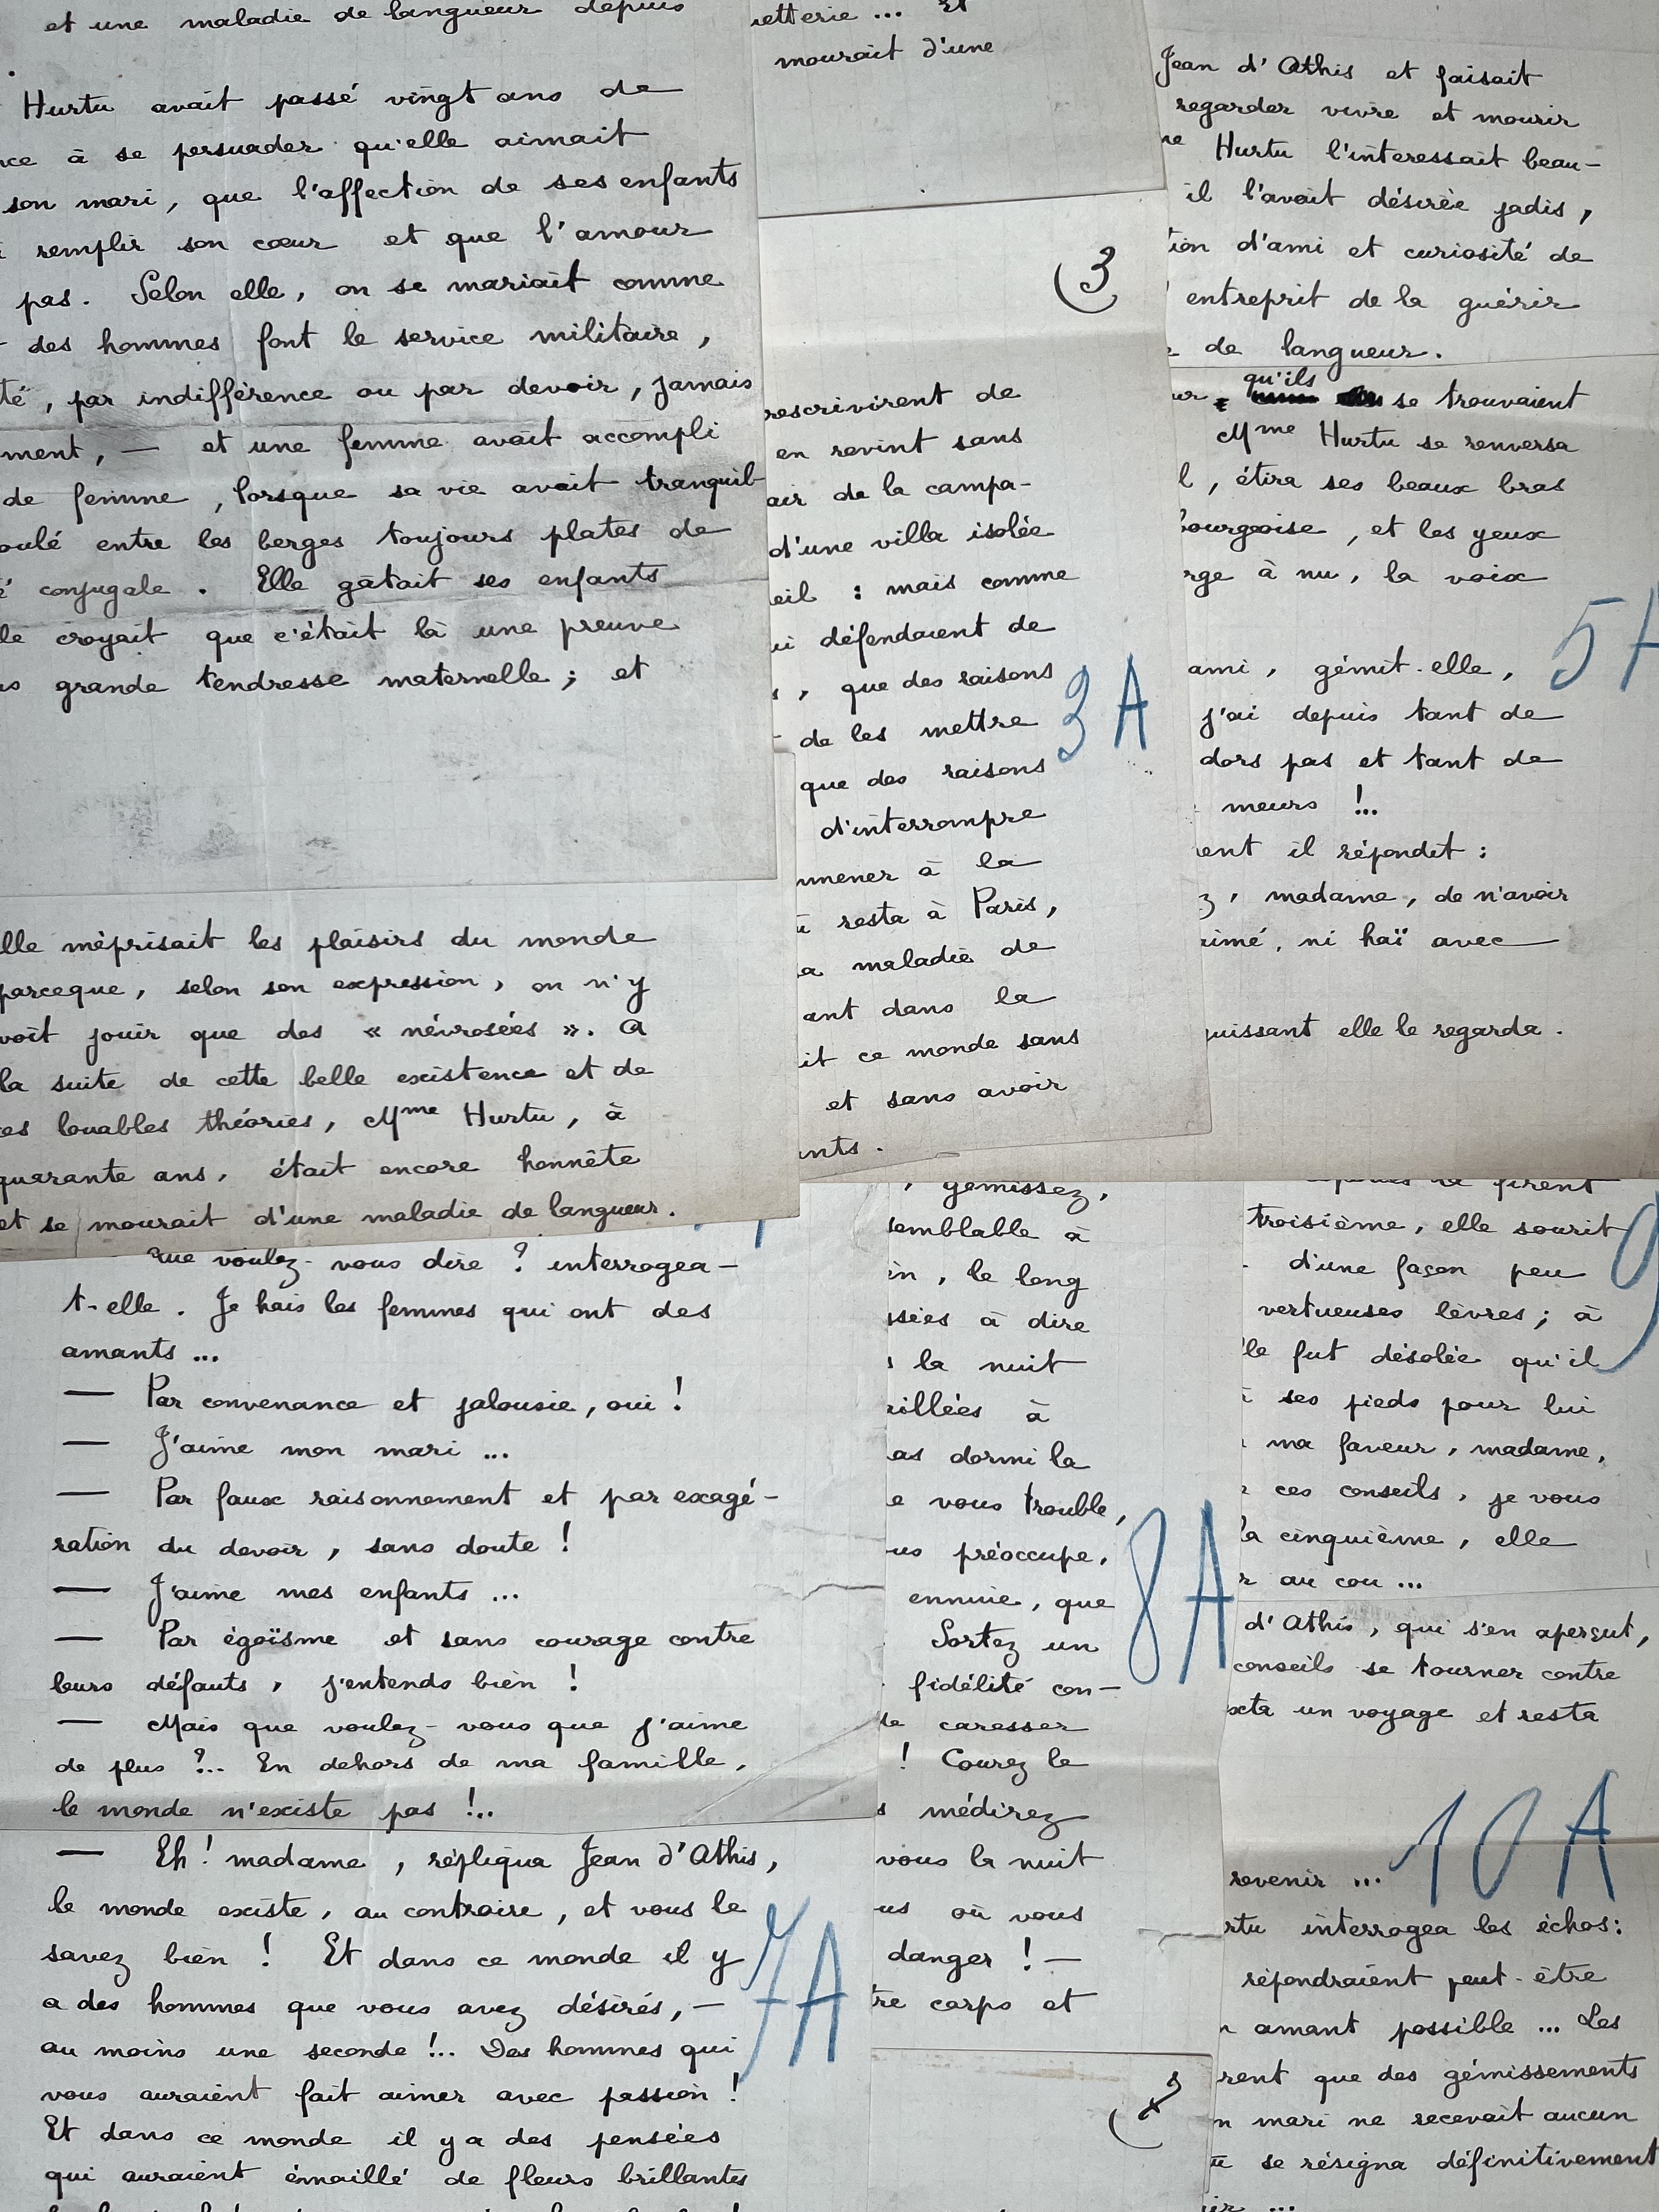 et une maladie de langueur depuis
Hurtu avait passé vingt ans de
à se persuader qu'elle aimait
son mari, que l'affection de ses enfants
remplir son cœur et que l'amour
pas. Selon elle, on se mariait comme
des hommes font le service militaire,
té, par indifférence ou par devoir, jamais
ment, — et une femme avait accompli
de femme, lorsque sa vie avait tranquil-
oulé entre les berges toujours plates de
conjugale. Elle gâtait ses enfants
croyait que c'était là une preuve
grande tendresse maternelle ; et
lle méprisait les plaisirs du monde
parceque, selon son expression, on n'y
voit jouir que des « névrosées ». A
la suite de cette belle existence et de
ces louables théories, Mme Hurtu, à
quarante ans, était encore honnête
et se mourait d'une maladie de langueur.
que voulez-vous dire ? interrogea-
t-elle. Je hais les femmes qui ont des
amants ...
— Par convenance et jalousie, oui !
— J'aime mon mari ...
— Par faux raisonnement et par exagé-
ration du devoir, sans doute !
— J'aime mes enfants ...
— Par égoïsme et sans courage contre
leurs défauts, j'entends bien !
— Mais que voulez-vous que j'aime
de plus ?.. En dehors de ma famille,
le monde n'existe pas !..
— Eh ! madame, répliqua Jean d'Athis,
le monde existe, au contraire, et vous le
savez bien ! Et dans ce monde il y
a des hommes que vous avez désirés, —
au moins une seconde !.. Des hommes qui
vous auraient fait aimer avec passion !
Et dans ce monde il y a des pensées
qui auraient émaillé de fleurs brillantes
7A
etterie ... Et
mourait d'une
3
rescrivirent de
en revint sans
air de la campa-
d'une villa isolée
eil : mais comme
ui défendaient de
, que des raisons
de les mettre
que des raisons
d'interrompre
mmener à la
resta à Paris,
a maladie de
ant dans la
it ce monde sans
et sans avoir
ants.
3A
, gémissez,
semblable à
in, le long
ssées à dire
la nuit
eillées à
as dormi la
e vous trouble,
us préoccupe,
ennuie, que
Sortez un
fidélité con-
de caresser
! Courez le
s médirez
vous la nuit
us où vous
danger ! —
tre corps et
8A
Jean d'Athis et faisait
regarder vivre et mourir
me Hurtu l'interessait beau-
il l'avait désirée jadis,
tion d'ami et curiosité de
entreprit de la guérir
de langueur.
qu'ils
se trouvaient
Mme Hurtu se renversa
l, étira ses beaux bras
bourgeoise, et les yeux
rge à nu, la voix
ami, gémit-elle,
j'ai depuis tant de
dors pas et tant de
meurs !..
ent il répondit :
z, madame, de n'avoir
aimé, ni haï avec
guissant elle le regarda.
5A
firent
troisième, elle sourit
d'une façon peu
vertueuses lèvres ; à
lle fut désolée qu'il
à ses pieds pour lui
ma faveur, madame,
ces conseils, je vous
la cinquième, elle
r au cou ...
d'Athis, qui s'en aperçut,
conseils se tourner contre
xta un voyage et resta
9
revenir ...
rtu interrogea les échos :
répondraient peut-être
amant possible ... Les
rent que des gémissements
n mari ne recevait aucun
se résigna définitivement
10A